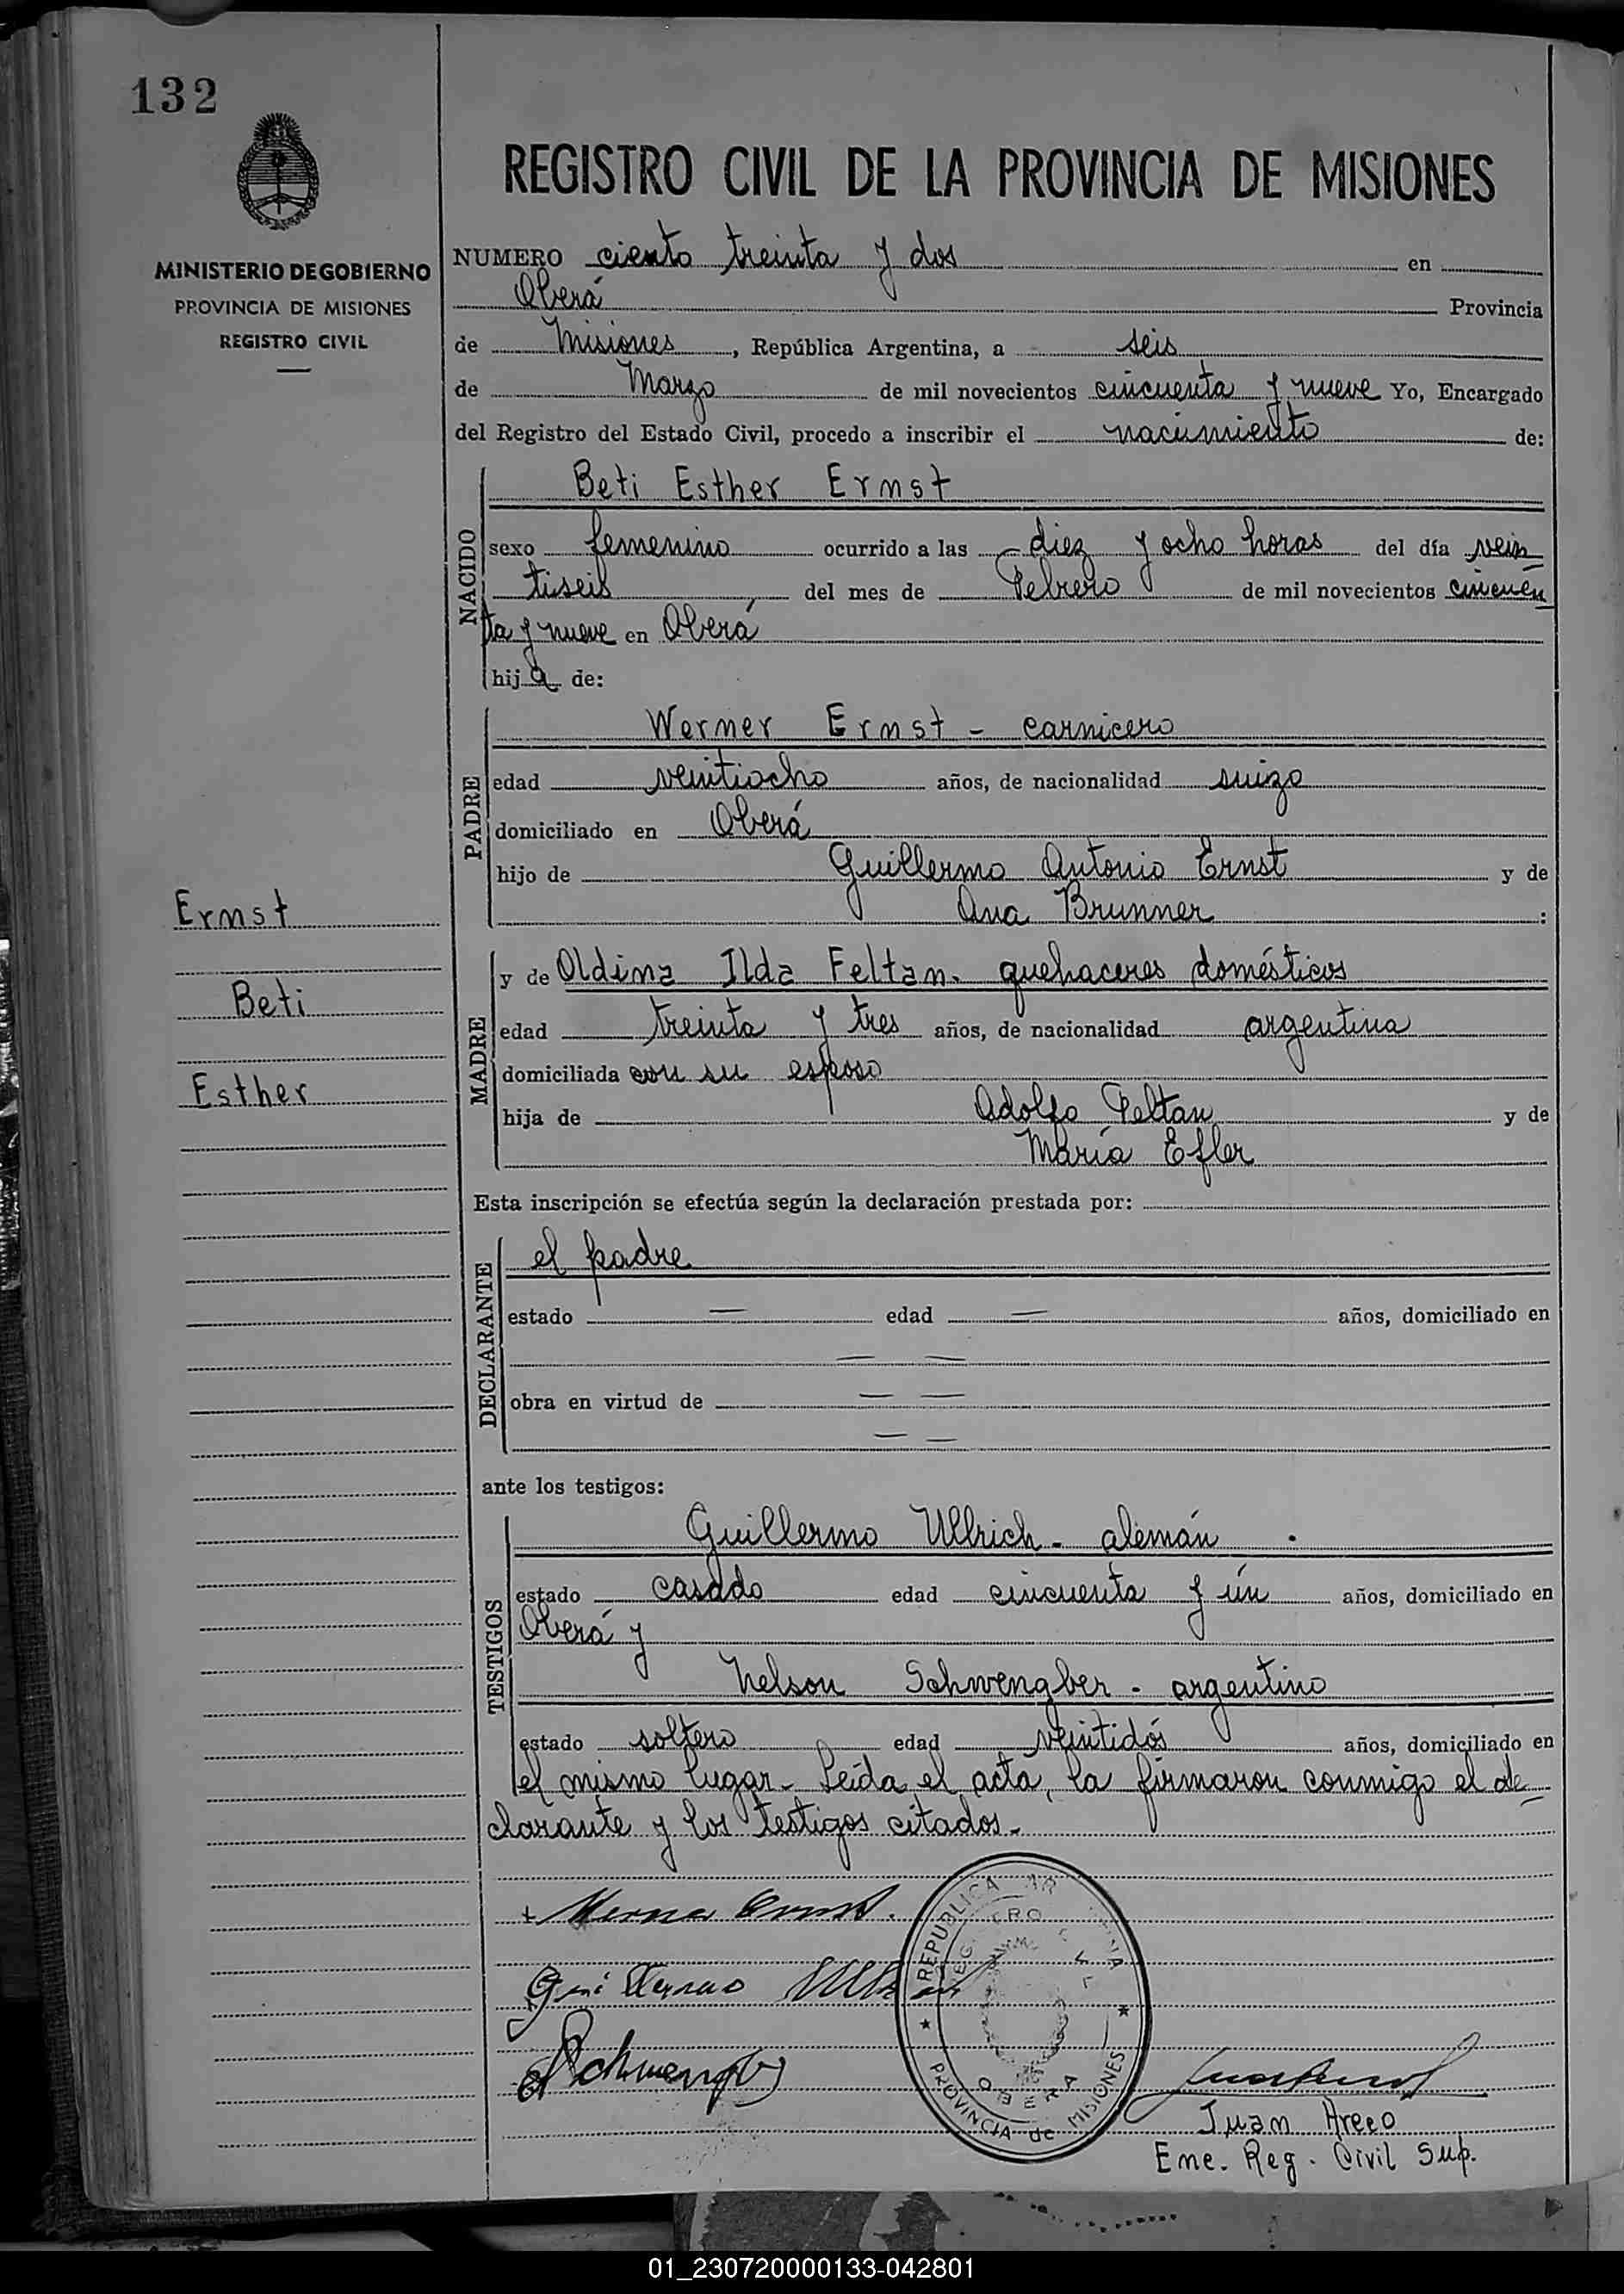 132
MINISTERIO DE GOBIERNO
PROVINCIA DE MISIONES
REGISTRO CIVIL
REGISTRO CIVIL DE LA PROVINCIA DE MISIONES
NUMERO ciento treinta y dos en
Oberá Provincia
de Misiones, República Argentina, a seis
de Marzo de mil novecientos cincuenta y nueve Yo, Encargado
del Registro del Estado Civil, procedo a inscribir el nacimiento de:
NACIDO
Beti Esther Ernst
sexo femenino ocurrido a las diez y ocho horas del día vein
tiseis del mes de Febrero de mil novecientos cincuen
ta y nueve en Oberá
hija de:
PADRE
Werner Ernst - carnicero
edad veintiocho años, de nacionalidad suizo
domiciliado en Oberá
hijo de Guillermo Antonio Ernst y de
Ana Brunner :
MADRE
y de Oldina Ilda Feltan - quehaceres domésticos
edad treinta y tres años, de nacionalidad argentina
domiciliada con su esposo
hija de Adolfo Feltan y de
María Efler
Ernst
Beti
Esther
Esta inscripción se efectúa según la declaración prestada por:
DECLARANTE
el padre
estado — edad — años, domiciliado en
— —
obra en virtud de — —
— —
ante los testigos:
TESTIGOS
Guillermo Ullrich - alemán
estado casado edad cincuenta y ún años, domiciliado en
Oberá y
Nelson Schwengber - argentino
estado soltero edad veintidós años, domiciliado en
el mismo lugar - Leída el acta, la firmaron conmigo el de
clarante y los testigos citados.
Werner Ernst.
Guillermo Ullrich
Schwengber
REPUBLICA
OBERA
PROVINCIA de MISIONES
Juan Areco
Enc. Reg. Civil Sup.
01_230720000133-042801